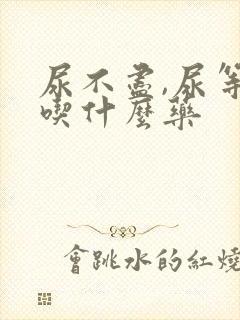 尿不盡,尿等
喫什麼藥
會跳水的紅燒